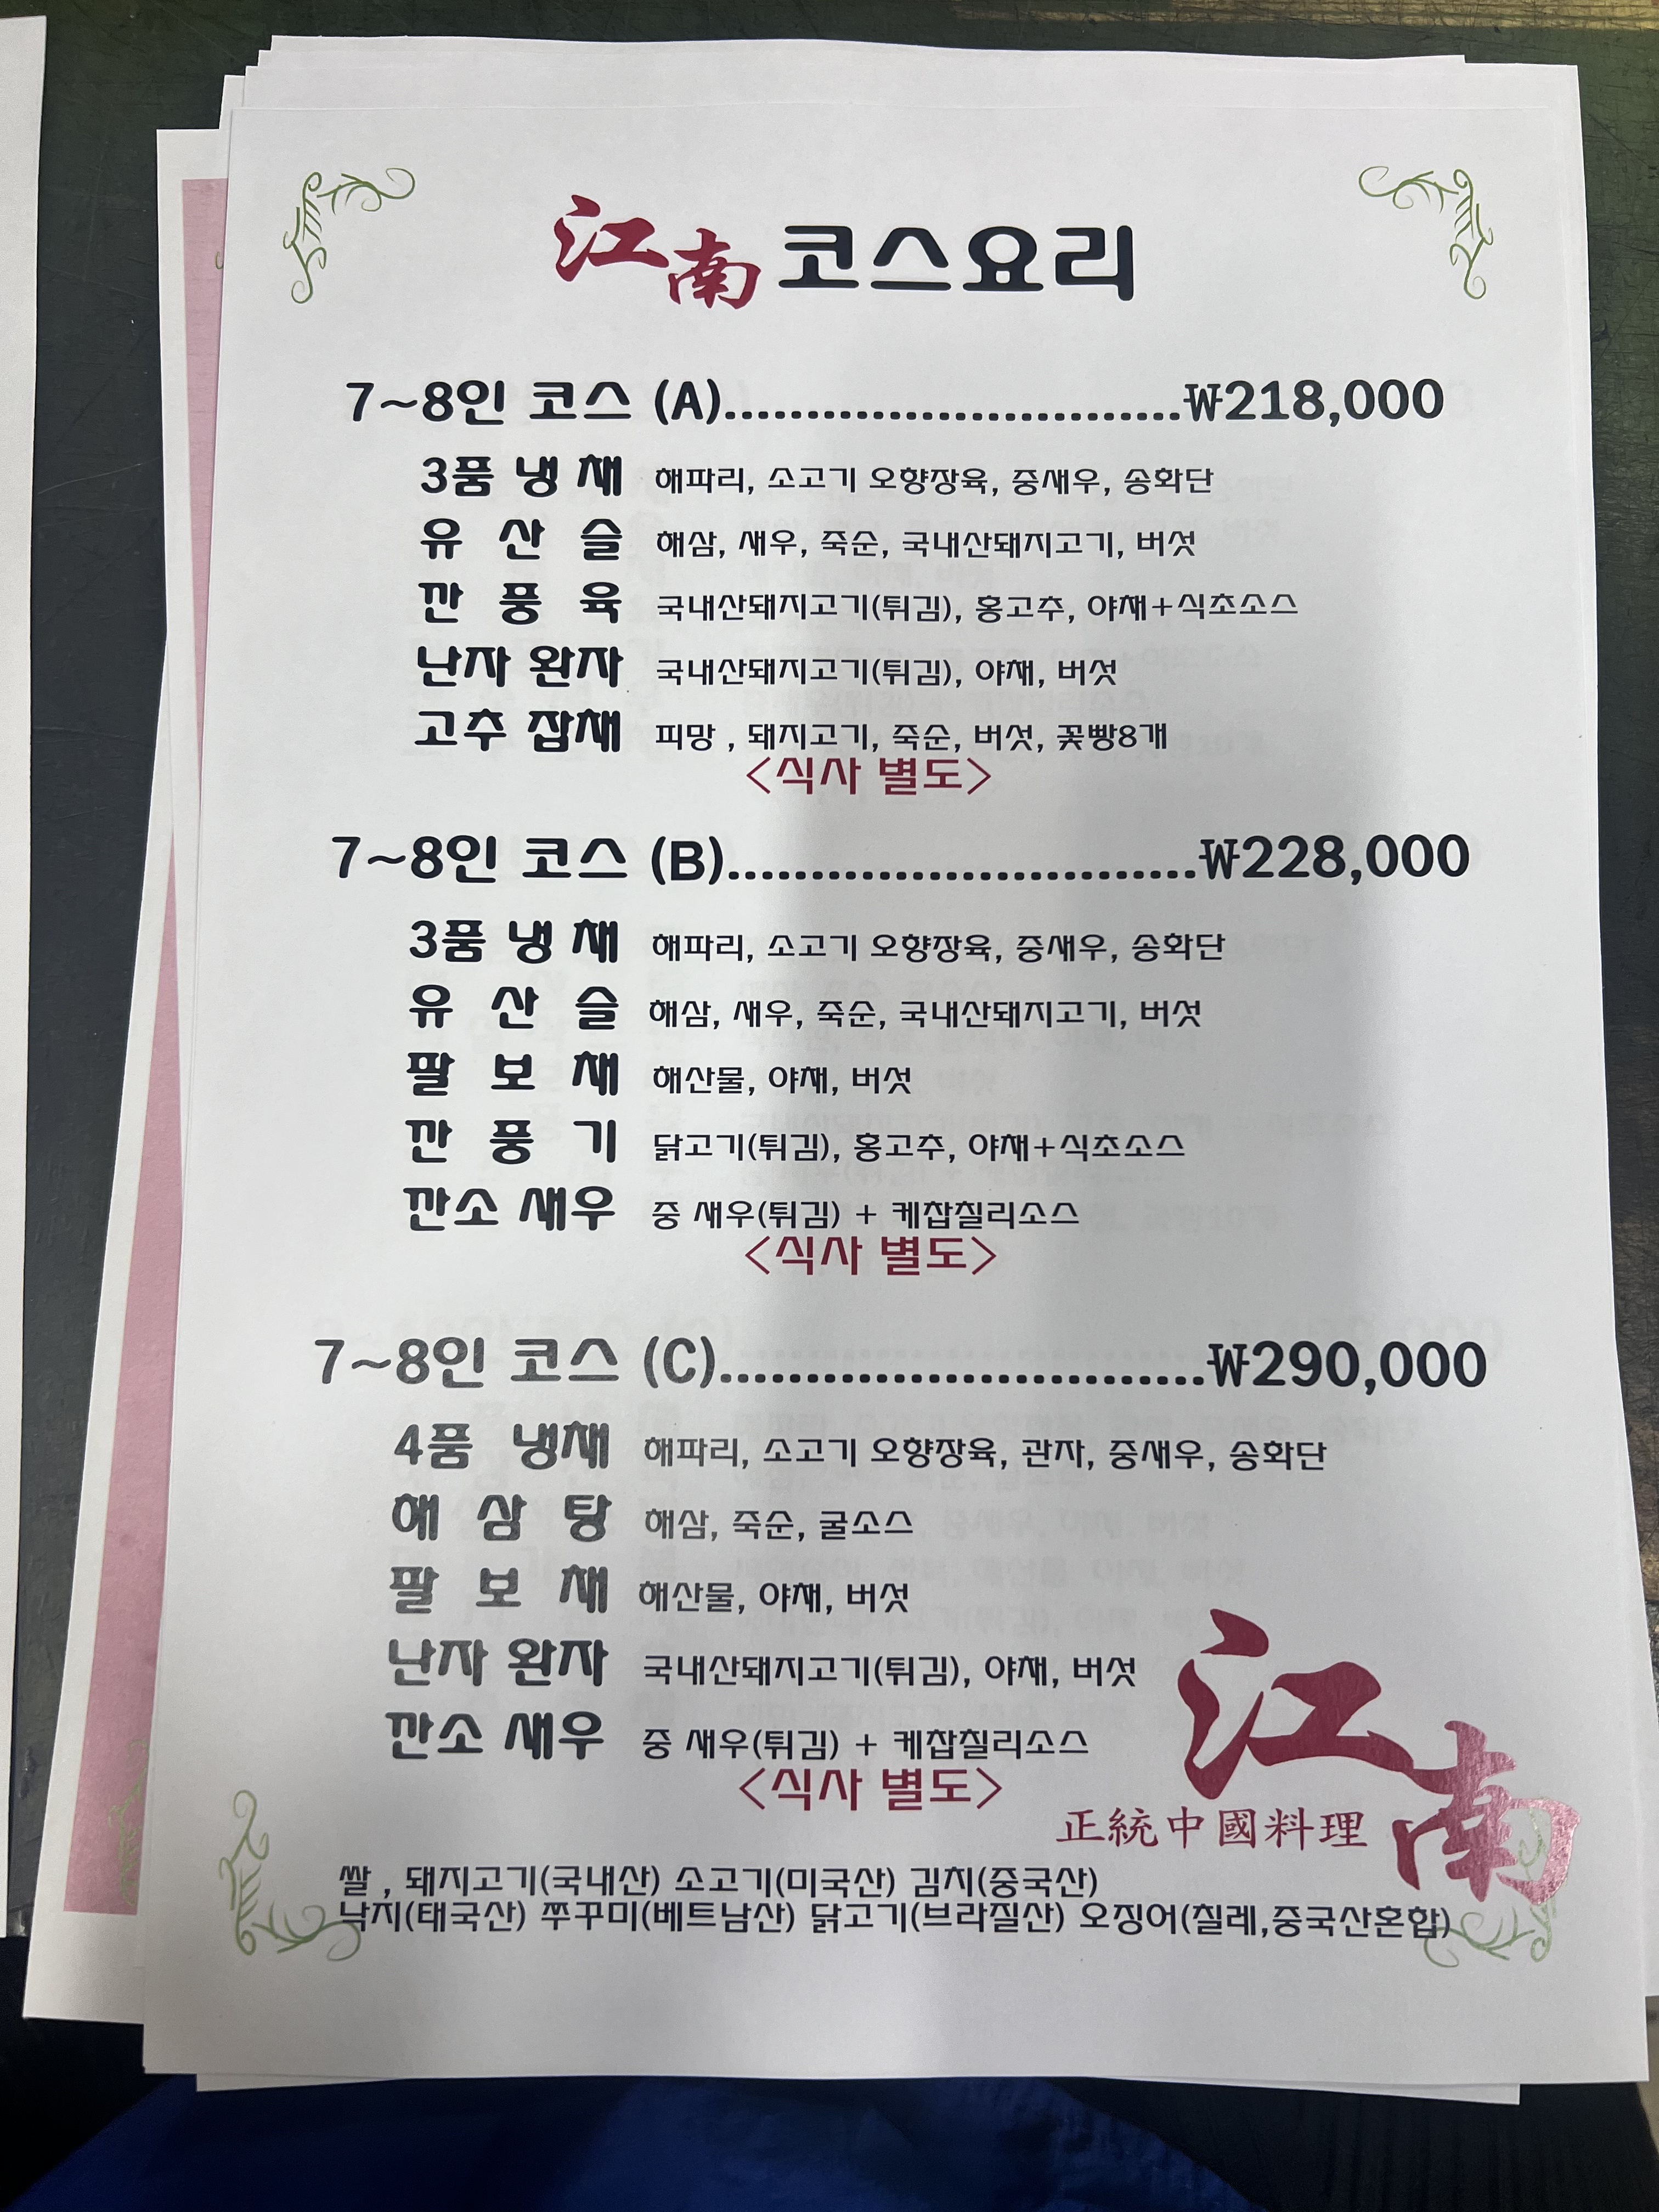 江南 코스요리
7~8인 코스 (A)............................₩218,000
3품 냉 채 해파리, 소고기 오향장육, 중새우, 송화단
유 산 슬 해삼, 새우, 죽순, 국내산돼지고기, 버섯
깐 풍 육 국내산돼지고기(튀김), 홍고추, 야채+식초소스
난자 완자 국내산돼지고기(튀김), 야채, 버섯
고추 잡채 피망 , 돼지고기, 죽순, 버섯, 꽃빵8개
<식사 별도>
7~8인 코스 (B)............................₩228,000
3품 냉 채 해파리, 소고기 오향장육, 중새우, 송화단
유 산 슬 해삼, 새우, 죽순, 국내산돼지고기, 버섯
팔 보 채 해산물, 야채, 버섯
깐 풍 기 닭고기(튀김), 홍고추, 야채+식초소스
깐소 새우 중 새우(튀김) + 케찹칠리소스
<식사 별도>
7~8인 코스 (C)............................₩290,000
4품 냉채 해파리, 소고기 오향장육, 관자, 중새우, 송화단
해 삼 탕 해삼, 죽순, 굴소스
팔 보 채 해산물, 야채, 버섯
난자 완자 국내산돼지고기(튀김), 야채, 버섯
깐소 새우 중 새우(튀김) + 케찹칠리소스
<식사 별도>
江南
正統中國料理
쌀 , 돼지고기(국내산) 소고기(미국산) 김치(중국산)
낙지(태국산) 쭈꾸미(베트남산) 닭고기(브라질산) 오징어(칠레,중국산혼합)